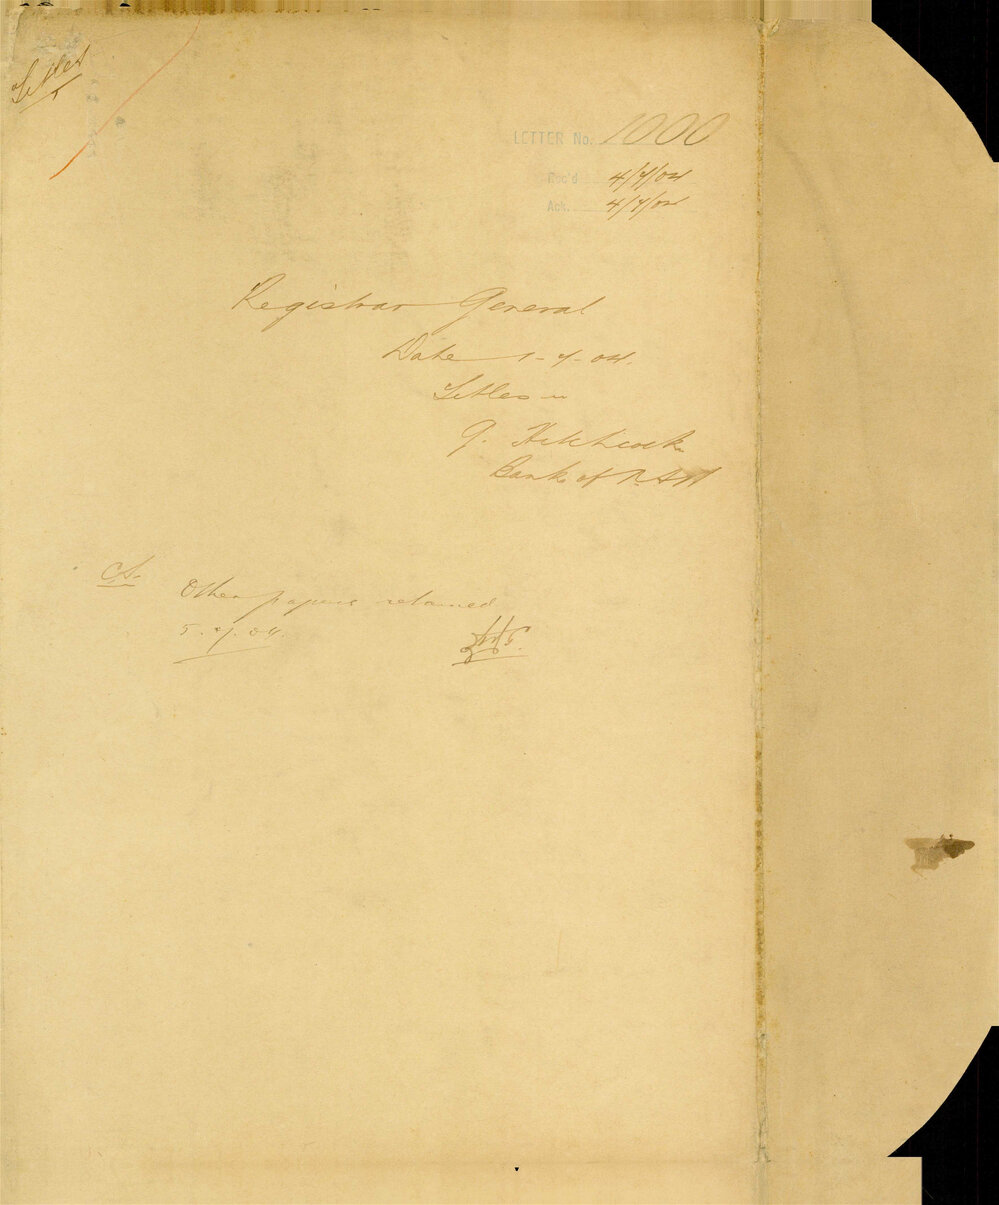 Titles
LETTER No. 1000
Rec'd 4/7/04
Ack. 4/7/04
Registrar General
Date 1-7-04.
Titles
G. Hitchcock
Bank of N.S.W
Other papers retained
5.7.04.